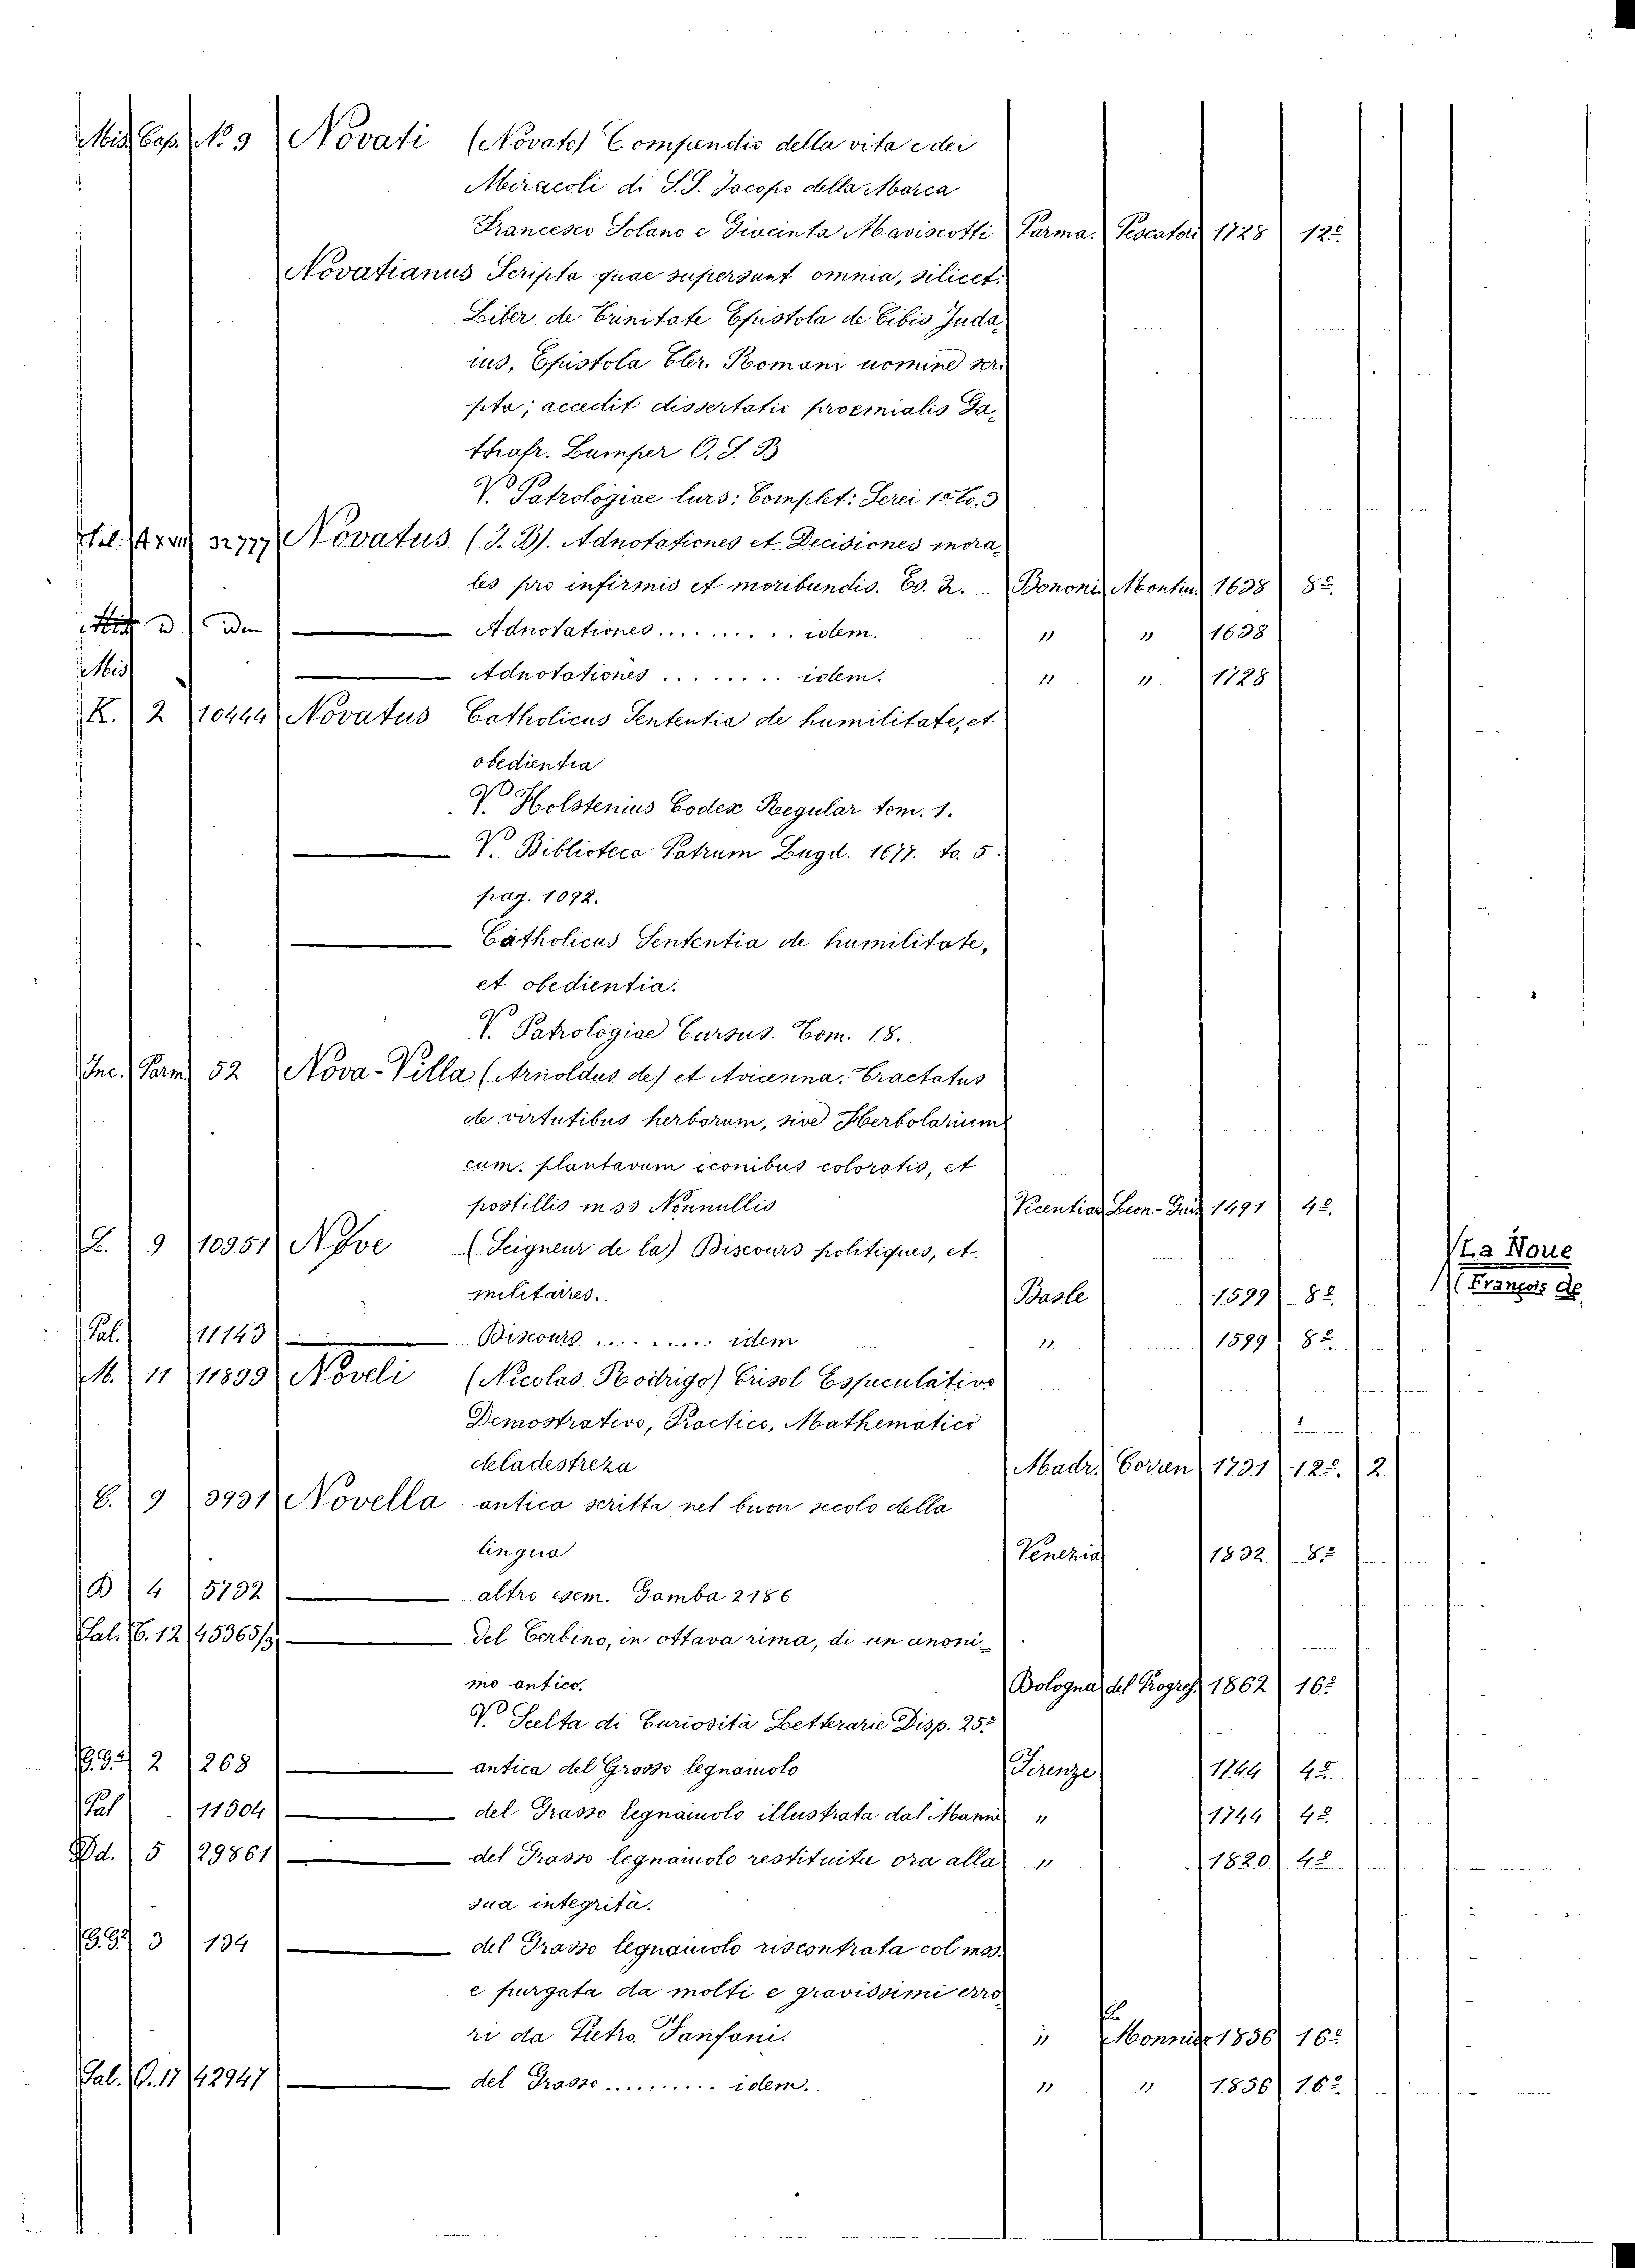 Mis. Cap. No 9 Novati (Novato) Compendio della vita e dei
Miracoli di S.S. Jacopo della Marca
Francesco Solano e Giacinta Maviscotti Parma. Pescatori 1728 12º
Novatianus Scripta quae supersunt omnia, silicet:
Liber de Trinitate Epistola de Cibis Juda
ius, Epistola Cler. Romani nomine scri
pta; accedit dissertatio proemialis Ga
thafr. Lumper O.S.B
V. Patrologiae Curs: Complet: Serei 1ª to. 3
32777 Novatus (J. B). Adnotationes et Decisiones mora
les pro infirmis et moribundis. Es. 2. Bononi Montiu 1638 8º
idem Adnotationes .......... idem. " " 1638
Mis Adnotationes ........ idem. " " 1728
K. 2 10444 Novatus Catholicus Sententia de humilitate, et
obedientia
V. Holstenius Codex Regular tom. 1.
V. Biblioteca Patrum Lugd. 1677. to. 5.
pag. 1092.
Catholicus Sententia de humilitate,
et obedientia.
V. Patrologiae Cursus. Tom. 18.
Inc. Parm 52 Nova-Villa (Arnoldus de) et Avicenna. Tractatus
de virtutibus herborum, sive Herbolarium
cum. plantarum iconibus coloratis, et
postillis in ss Nonnullis Vicentiae Leon- 1491 4º
9. 10951 Nove (Seigneur de la) Discours politiques, et
La Noue
militaires. Basle 1599 8º
(François de
Pal. 11143 Discours .......... idem " 1599 8º
M. 11 11899 Noveli (Nicolas Rodrigo) Crisol Especulativo
Demostrativo, Practico, Mathematico
deladestreza Madr. Corren 1731 12º. 2
C. 9 3931 Novella antica scritta nel buon secolo della
lingua Venezia 1832 8º
B 4 5732 altro esem. Gamba 2186
Pal. C. 12 45365/3 del Cerbino, in ottava rima, di un anoni-
mo antico. Bologna del Progres. 1862 16º
V. Scelta di Curiosità Letterarie Disp. 25ª
2 268 antica del Grosso legnaiuolo Firenze 1744 4º
Pal 11504 del Grasso legnaiuolo illustrata dal Manni " 1744 4º
Dd. 5 29861 del Grasso legnaiuolo restituita ora alla " 1820 4º
sua integrità.
3 134 del Grasso legnaiuolo riscontrata col mss.
e purgata da molti e gravissimi erro
ri da Pietro Fanfani. " Le Monnier 1856 16º
Pal. 17 42947 del Grasso .......... idem. " " 1856 16º